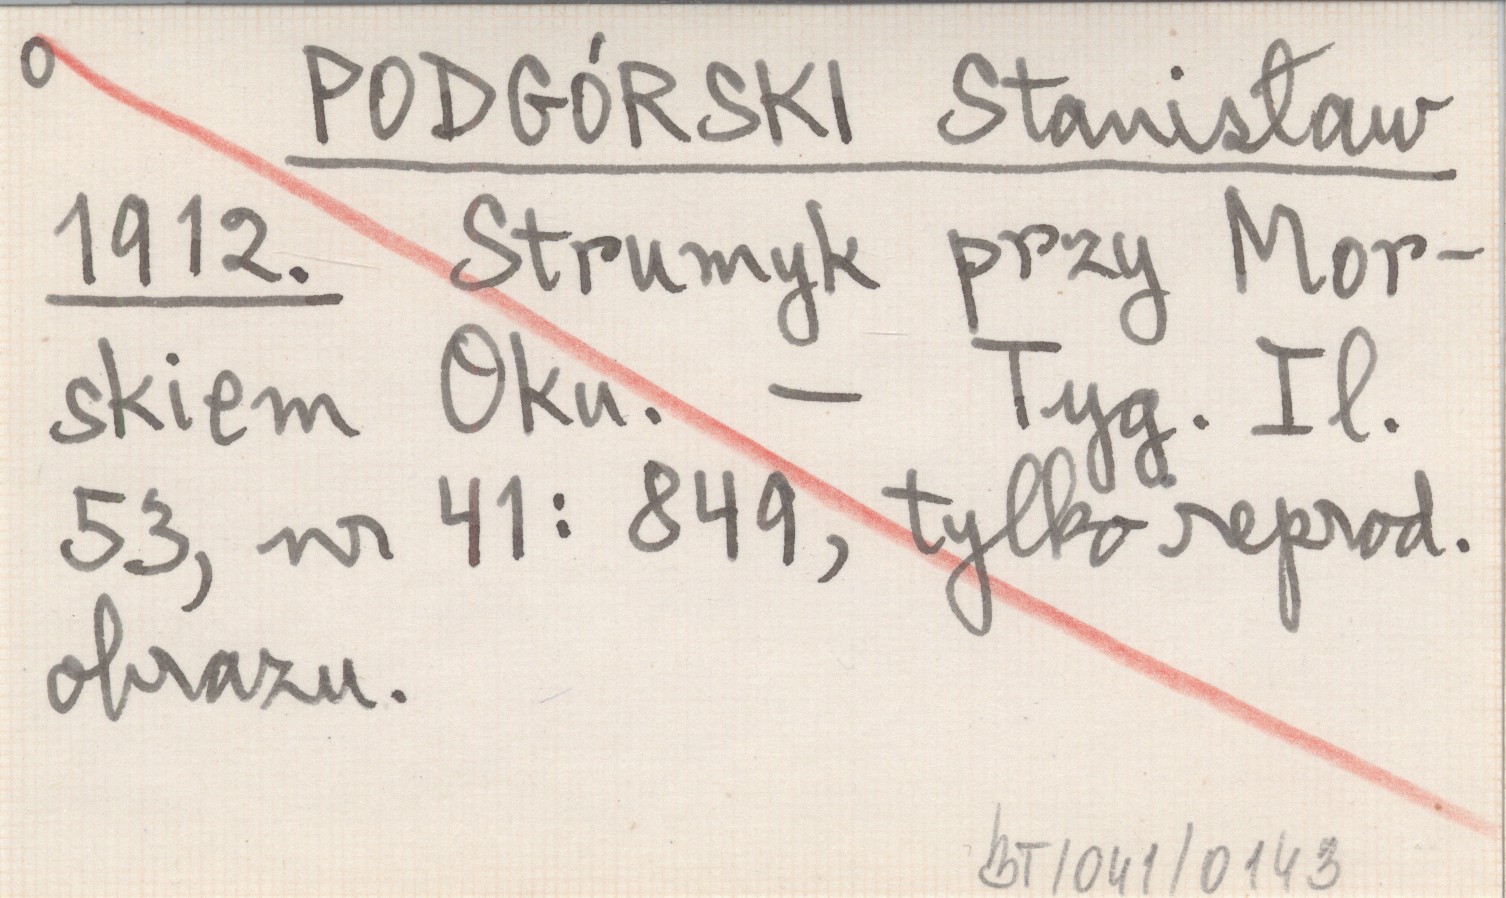 o PODGÓRSKI Stanisław
1912. Strumyk przy Mor-
skiem Oku. — Tyg. Il.
53, nr 41: 849, tylko reprod.
obrazu.
BT/041/0143